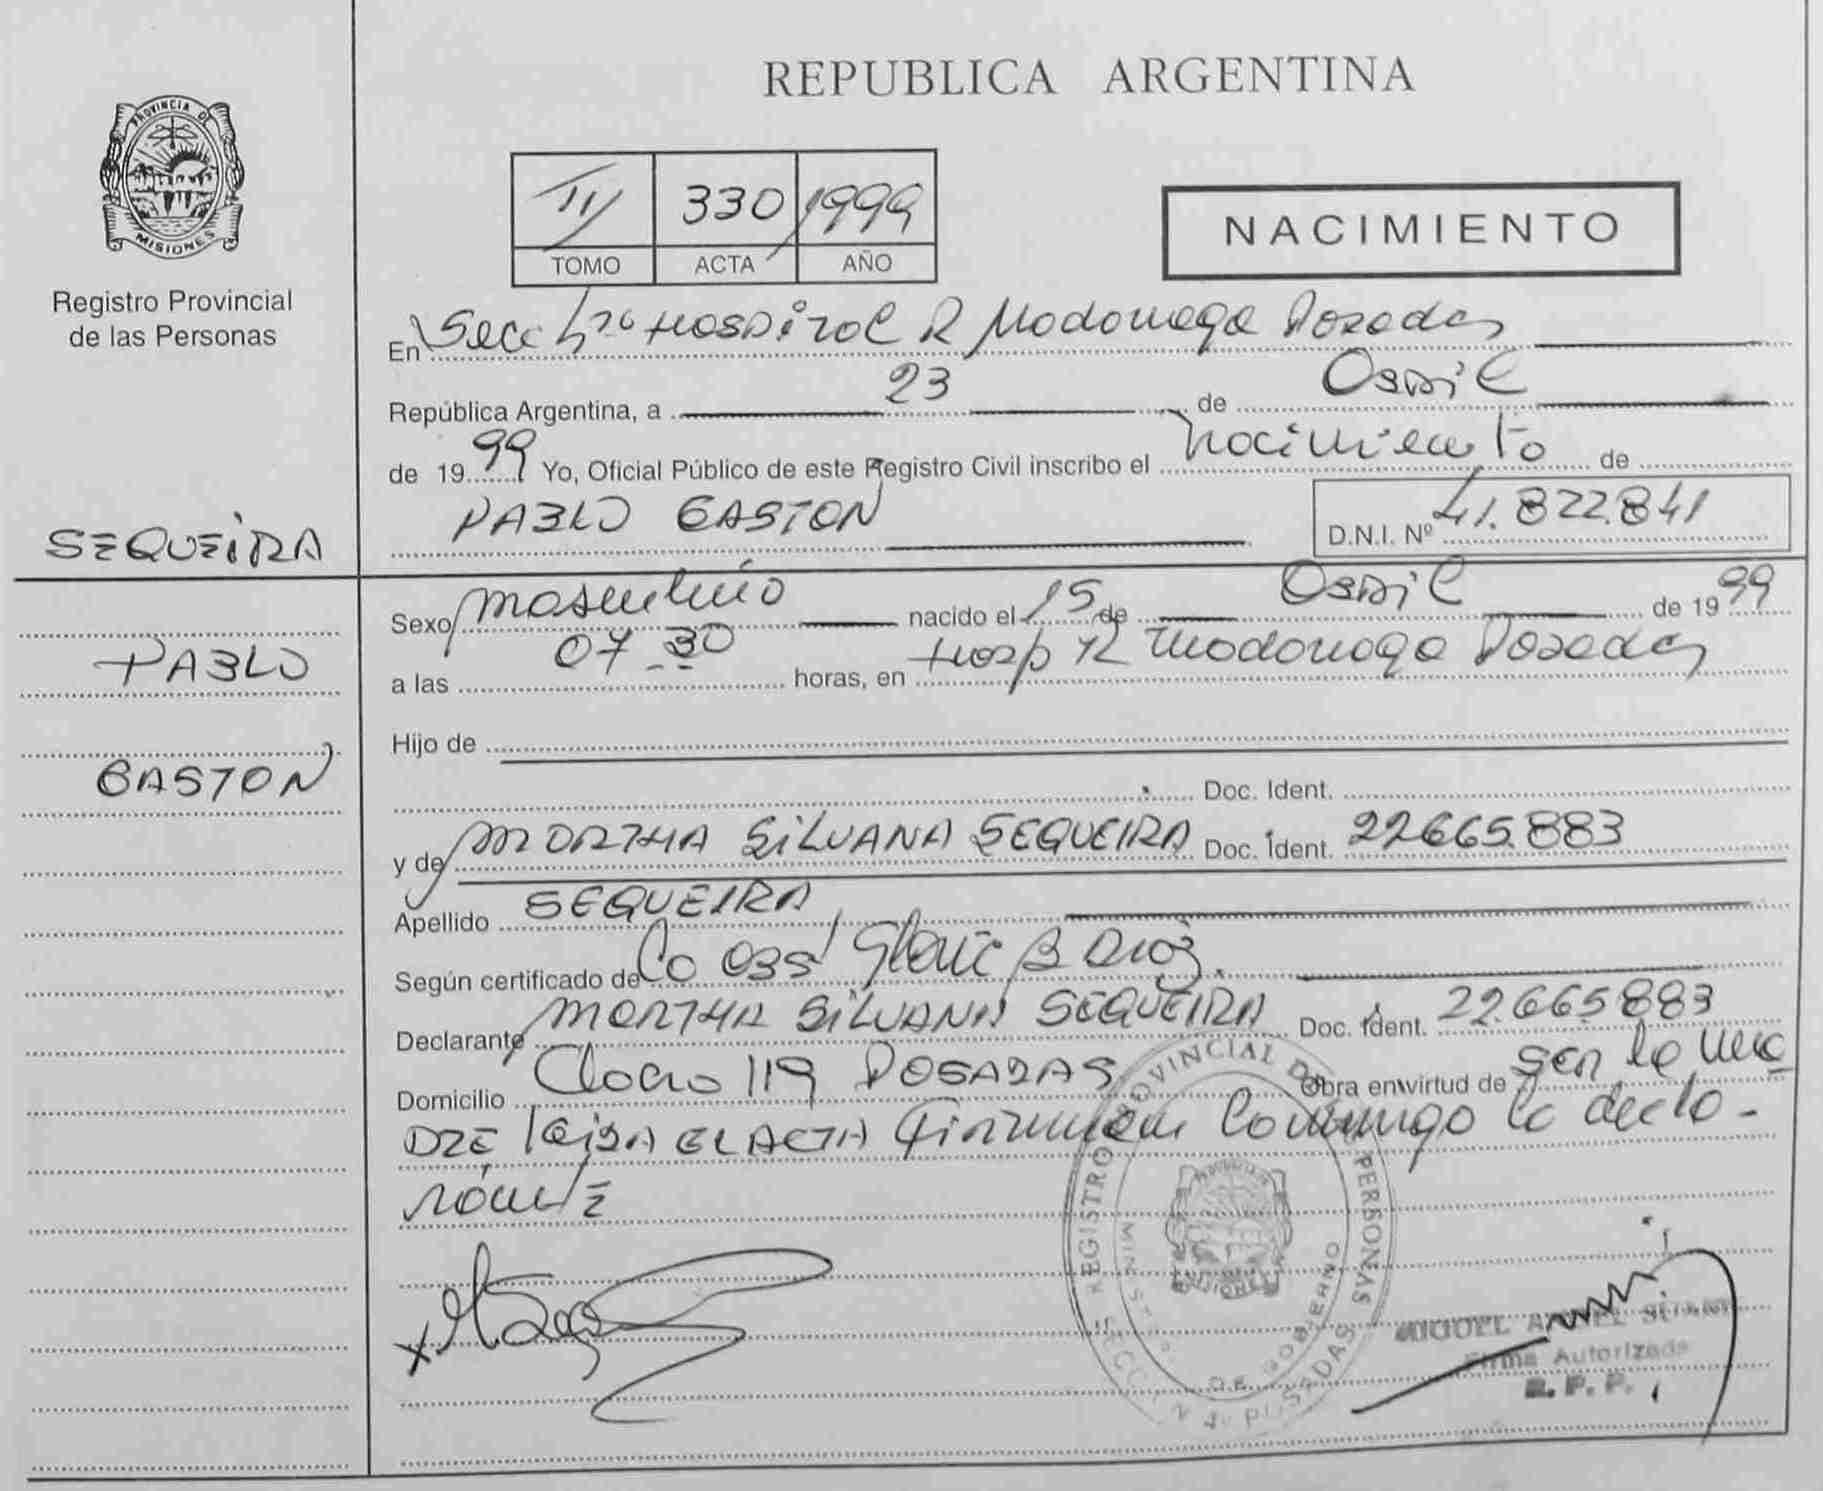 REPUBLICA ARGENTINA
PROVINCIA DE
MISIONES
Registro Provincial
de las Personas
330 1999
TOMO ACTA AÑO
NACIMIENTO
En Secc Hospital R Madariaga Posadas
República Argentina, a 23 de Abril
de 1999 Yo, Oficial Público de este Registro Civil inscribo el nacimiento de
PABLO GASTON D.N.I. Nº 41.822.841
SEQUEIRA
PABLO
GASTON
Sexo masculino nacido el 15 de Abril de 1999
a las 07.30 horas, en Hosp R Madariaga Posadas
Hijo de
Doc. Ident.
y de MARTHA SILVANA SEQUEIRA Doc. Ident. 22.665.883
Apellido SEQUEIRA
Según certificado de
Declarante MARTHA SILVANA SEQUEIRA Doc. Ident. 22.665.883
Domicilio 119 POSADAS Obra en virtud de ser la ma
DRE leida EL ACTA firma conmigo la decla-
rante
REGISTRO PROVINCIAL DE PERSONAS
DE GOBIERNO
POSADAS
MIGUEL ANGEL
Firma Autorizada
R. P. P.